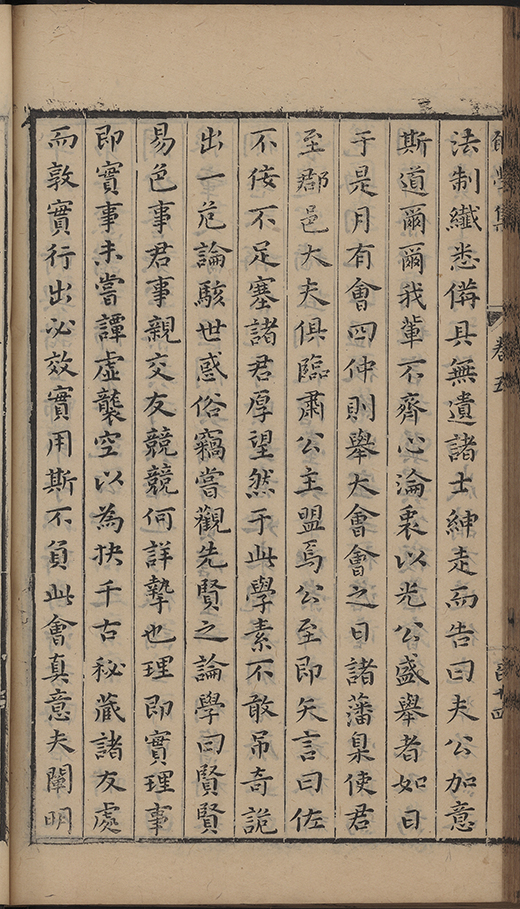 集 卷五 十四
法制纖悉備具無遺諸士紳走而告曰夫公加意
斯道爾爾我輩不齊心淪衷以光公盛舉者如日
于是月有會四仲則舉大會會之日諸藩臬使君
至郡邑大夫俱臨肅公主盟焉公至即矢言曰佐
不佞不足塞諸君厚望然于此學素不敢吊奇詭
出一危論駭世惑俗竊嘗觀先賢之論學曰賢賢
易色事君事親交友競競何詳摯也理即實理事
即實事未嘗譚虛襲空以為抉千古秘藏諸友處
而敦實行出必效實用斯不負此會真意夫闡明